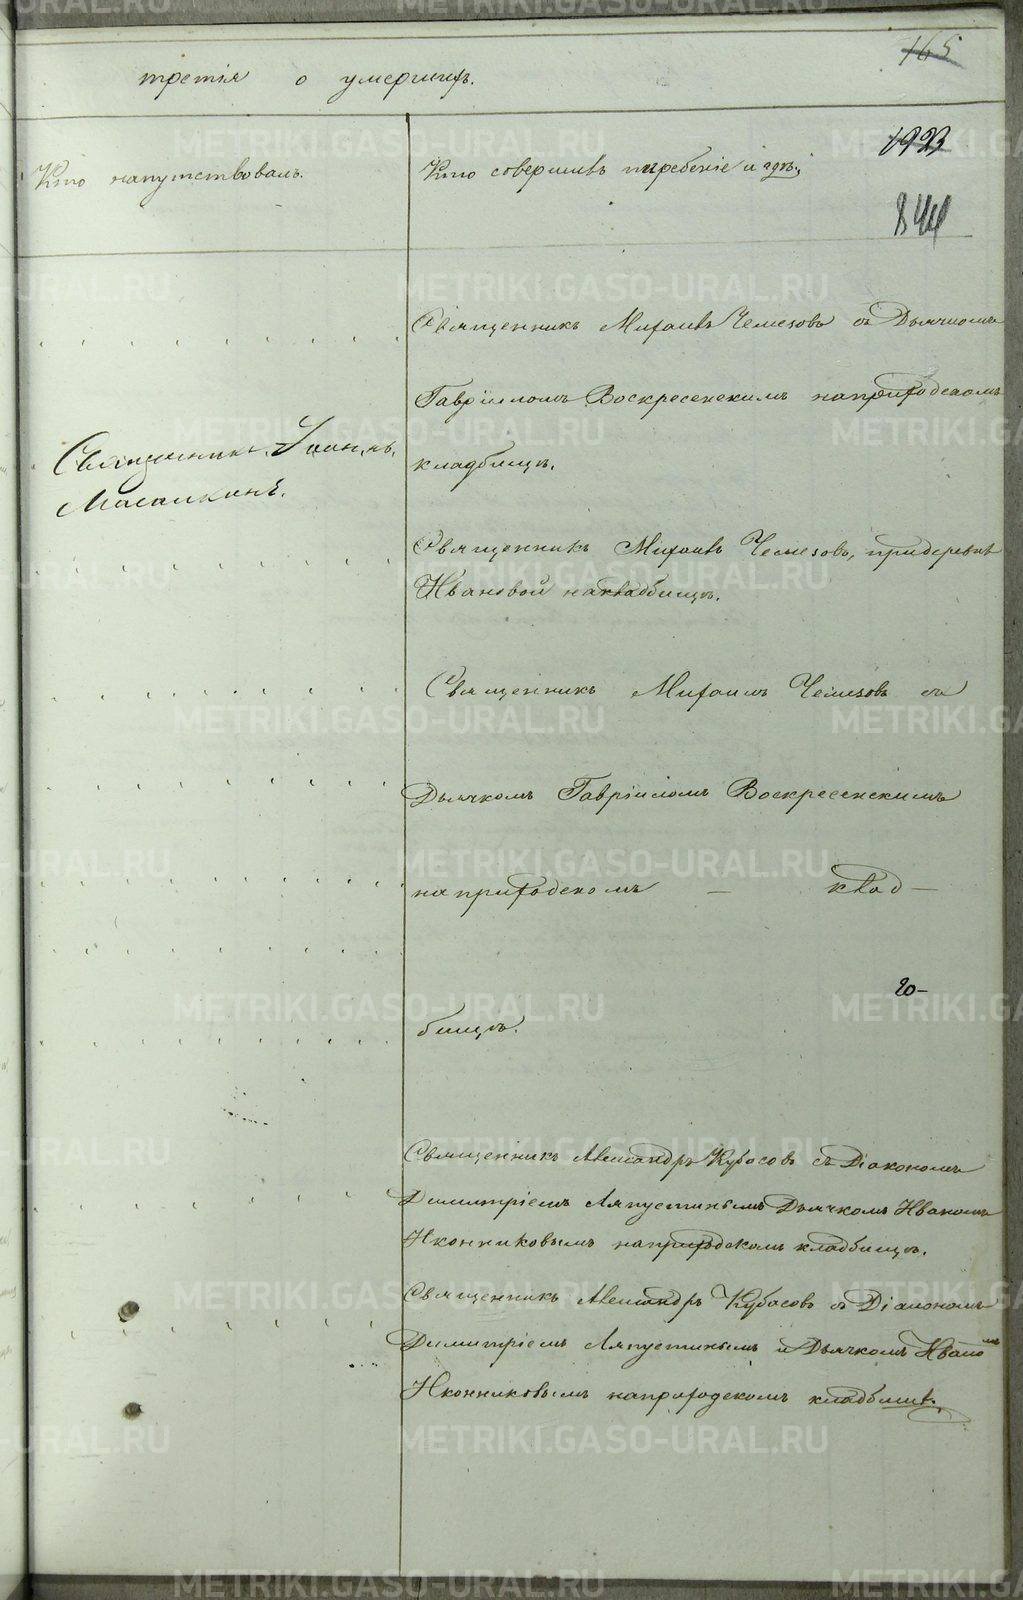 165
третія о умершихъ.
1923
844
Кто напутствовалъ.
Кто совершилъ погребеніе и гдѣ.
Священникъ Михаилъ Чемезовъ съ Дьячкомъ
Гавріиломъ Воскресенскимъ на приходскомъ
кладбищѣ.
Священникъ Іоаннъ
Масалкинъ.
Священникъ Михаилъ Чемезовъ, при деревнѣ
Ивановой на кладбищѣ.
Священникъ Михаилъ Чемезовъ съ
Дьячкомъ Гавріиломъ Воскресенскимъ
на приходскомъ — клад—
20-
бищѣ.
Священникъ Александръ Кубасовъ съ Діакономъ
Димитріемъ Ляпустинымъ Дьячкомъ Иваномъ
Иконниковымъ на приходскомъ кладбищѣ.
Священникъ Александръ Кубасовъ съ Діакономъ
Димитріемъ Ляпустинымъ и Дьячкомъ Иваномъ
Иконниковымъ на приходскомъ кладбищѣ.
METRIKI.GASO-URAL.RU